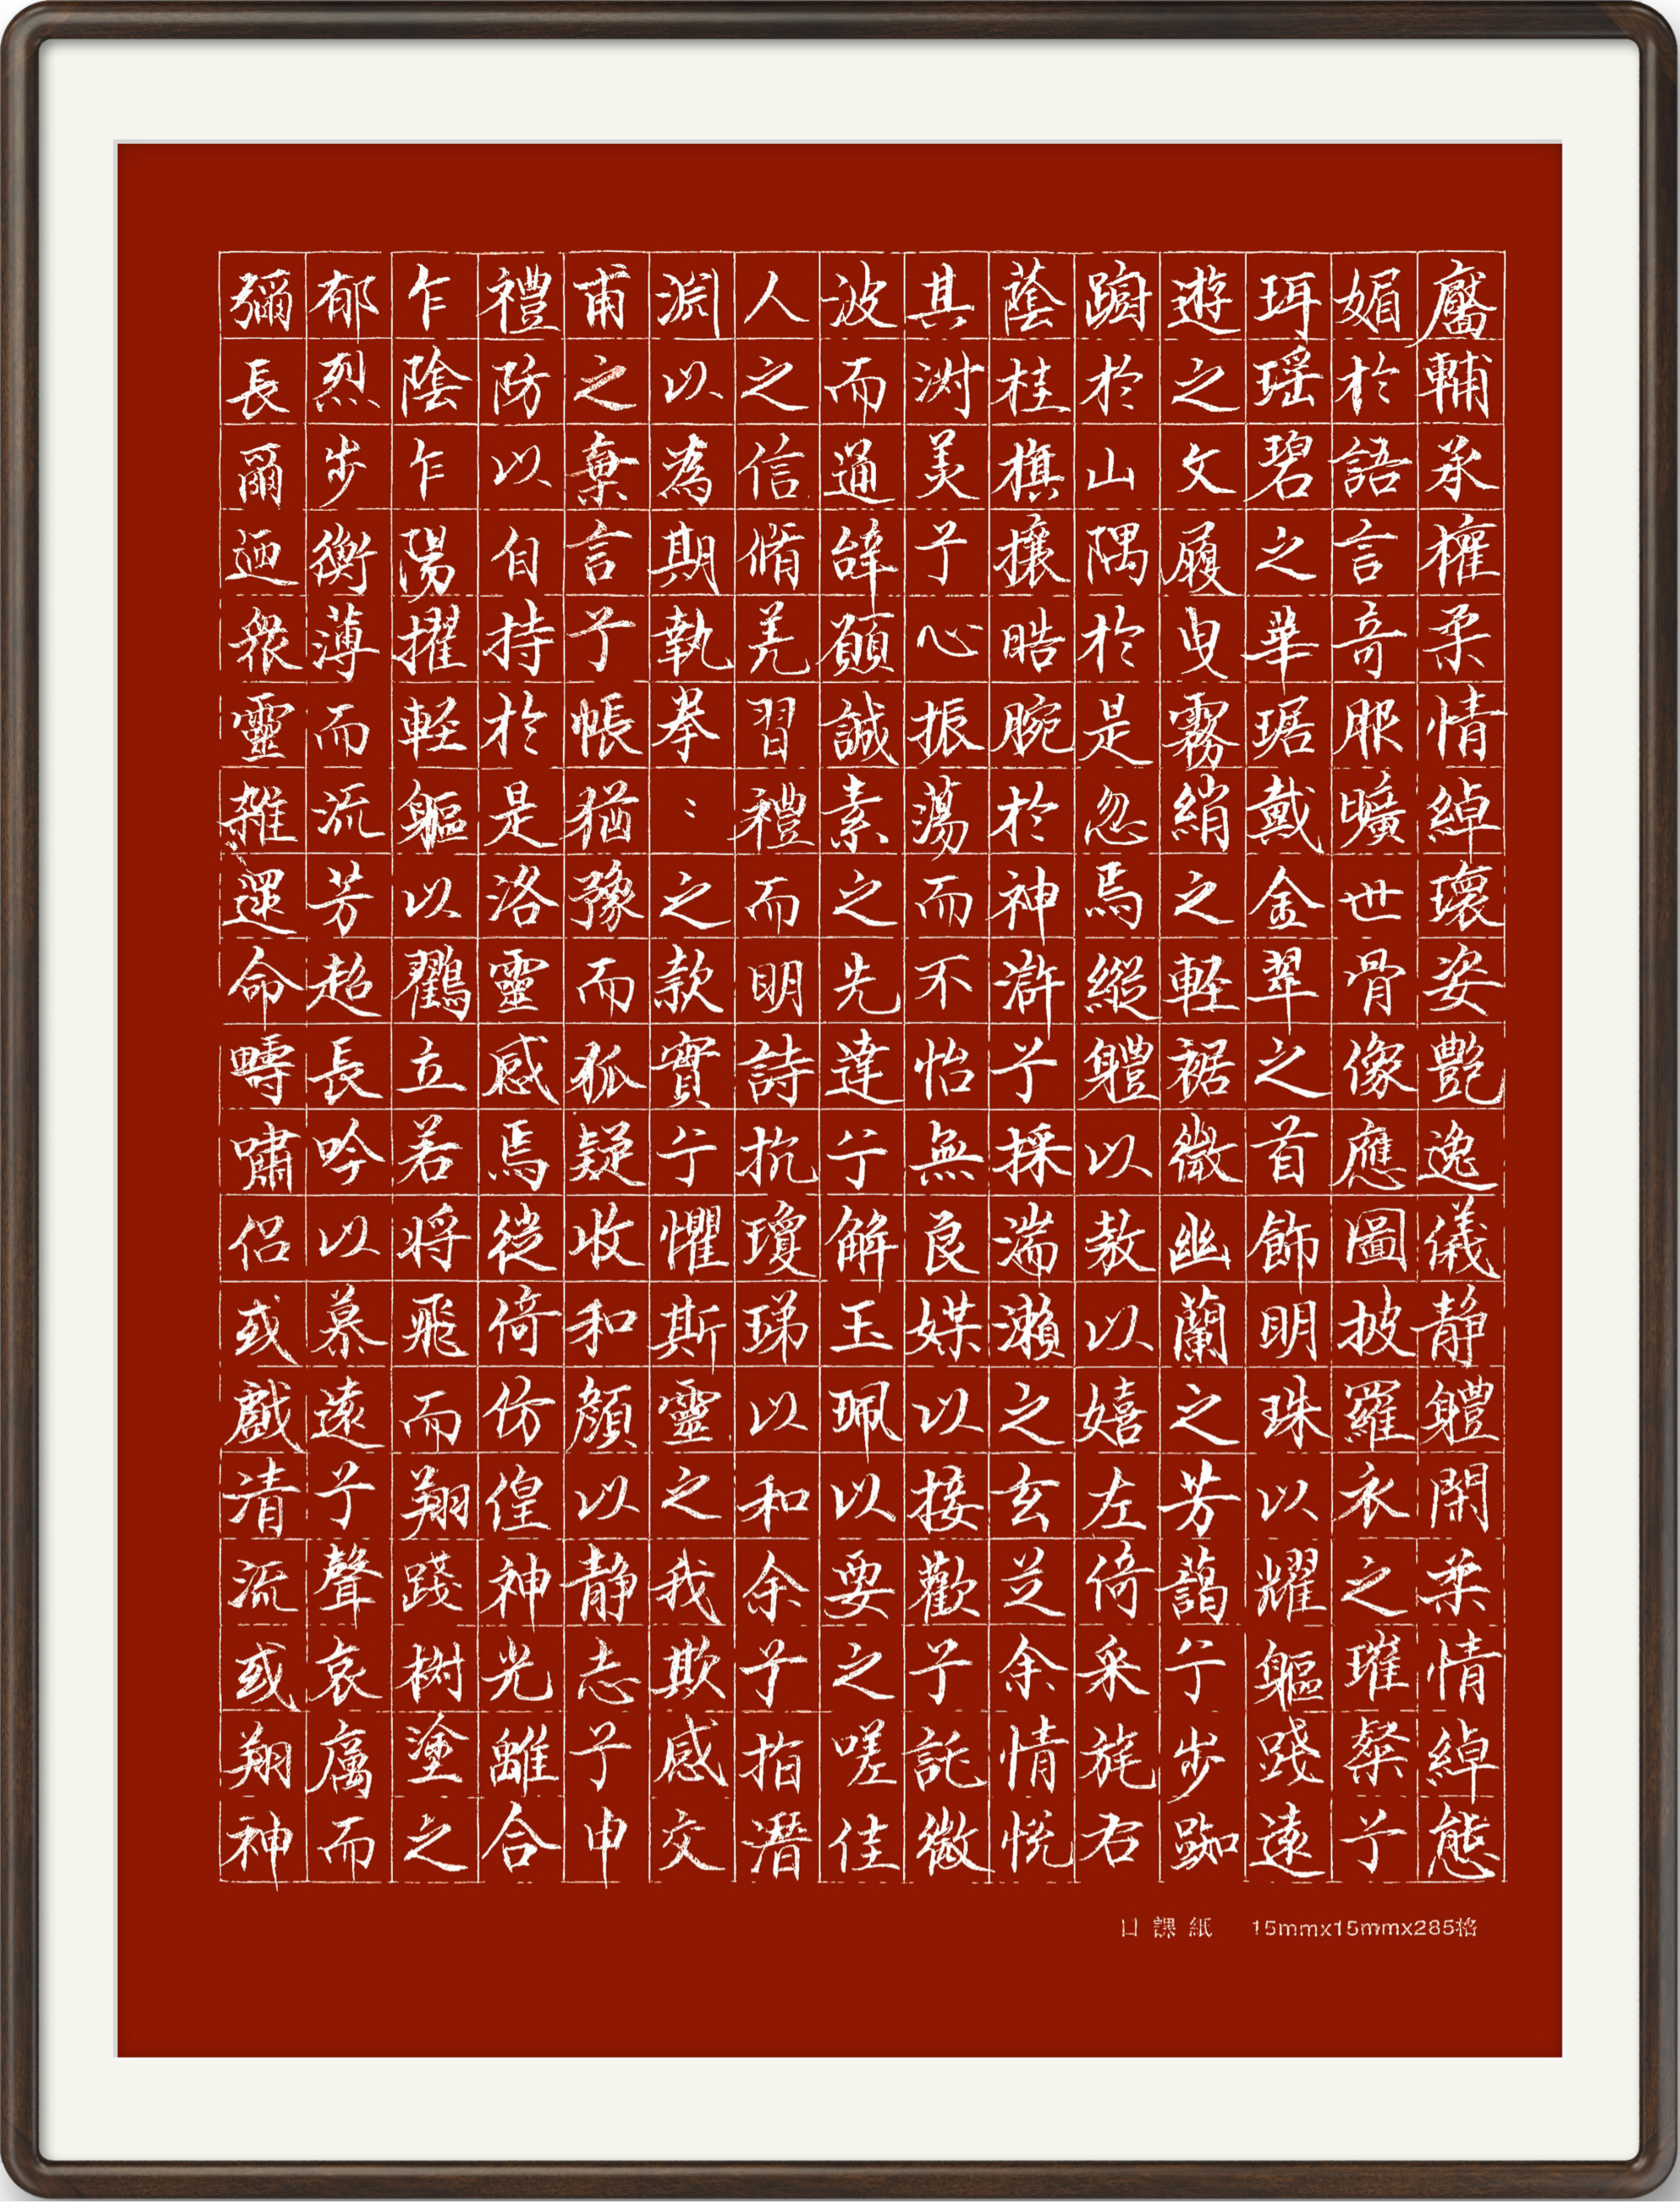 靨輔承權柔情綽瓌姿艷逸儀静軆閑柔情綽態
媚於語言奇服曠世骨像應圖披羅衣之璀粲兮
珥瑶碧之華琚戴金翠之首飾明珠以耀軀踐遠
遊之文履曳霧綃之輕裾微幽蘭之芳藹兮步踟
躕於山隅於是忽焉縱軆以敖以嬉左倚采旄右
蔭桂旗攘晧腕於神滸兮採湍瀨之玄芝余情悅
其淑美兮心振蕩而不怡無良媒以接歡兮託微
波而通辝願誠素之先達兮解玉珮以要之嗟佳
人之信脩羌習禮而明詩抗瓊珶以和余兮指潛
淵以為期執拳〻之款實兮懼斯靈之我欺感交
甫之棄言兮悵猶豫而狐疑收和顏以静志兮申
禮防以自持於是洛靈感焉徙倚彷徨神光離合
乍陰乍陽擢輕軀以鸖立若将飛而翔踐樹塗之
郁烈步衡薄而流芳超長吟以慕遠兮聲哀厲而
彌長爾迺衆靈雜遝命疇嘯侣或戲清流或翔神
日課紙 15mmx15mmx285格